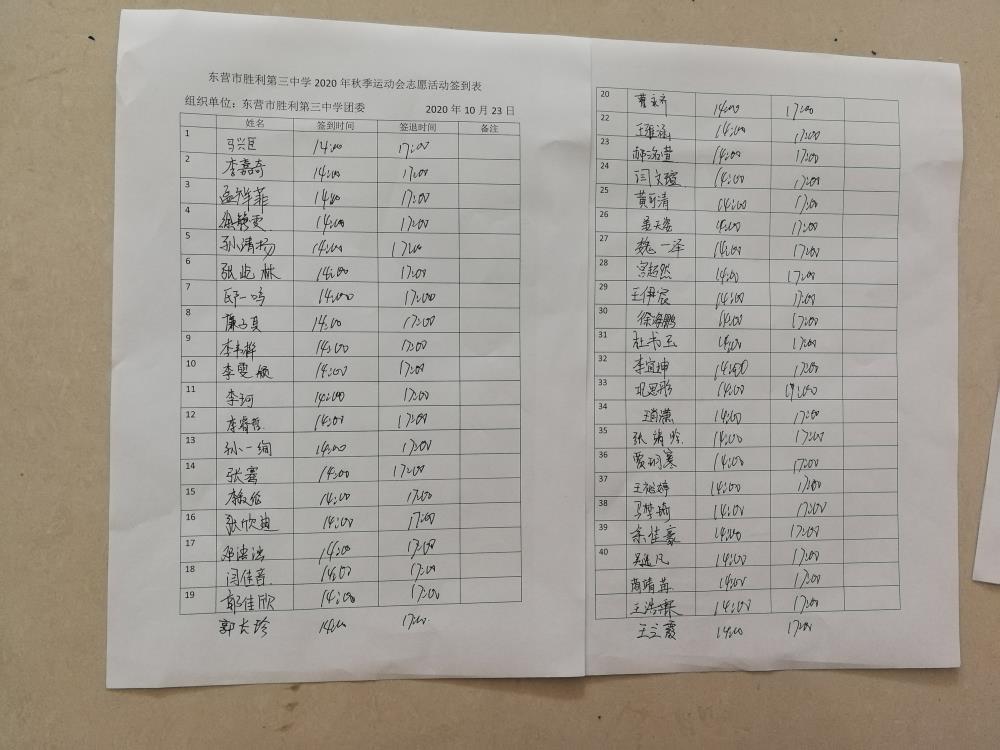 东营市胜利第三中学 2020 年秋季运动会志愿活动签到表
组织单位：东营市胜利第三中学团委 2020 年 10 月 23 日
姓名 签到时间 签退时间 备注
1 马兴臣 14:00 17:00
2 李嘉奇 14:00 17:00
3 孟祥菲 14:00 17:00
4 14:00 17:00
5 孙清扬 14:00 17:00
6 张屹林 14:00 17:00
7 邱一鸣 14:00 17:00
8 14:00 17:00
9 李韦桦 14:00 17:00
10 李雯颀 14:00 17:00
11 李珂 14:00 17:00
12 李睿哲 14:00 17:00
13 孙一绚 14:00 17:00
14 张骞 14:00 17:00
15 14:00 17:00
16 张欣迪 14:00 17:00
17 邓洁洁 14:00 17:00
18 闫佳音 14:00 17:00
19 郭佳欣 14:00 17:00
郭长珍 14:00 17:00
20 14:00 17:00
22 王雅涵 14:00 17:00
23 郝洛萱 14:00 17:00
24 闫文瑄 14:00 17:00
25 黄可清 14:00 17:00
26 姜天姿 14:00 17:00
27 魏一泽 14:00 17:00
28 宫超然 14:00 17:00
29 王伊宸 14:00 17:00
30 徐海鹏 14:00 17:00
31 杜书玉 14:00 17:00
32 李宜坤 14:00 17:00
33 孔思彤 14:00 17:00
34 王潇潇 14:00 17:00
35 张靖吟 14:00 17:00
36 贾珂寒 14:00 17:00
37 王祉婷 14:00 17:00
38 马梦琦 14:00 17:00
39 宗佳豪 14:00 17:00
40 14:00 17:00
商靖苒 14:00 17:00
王浩霖 14:00 17:00
王立霞 14:00 17:00